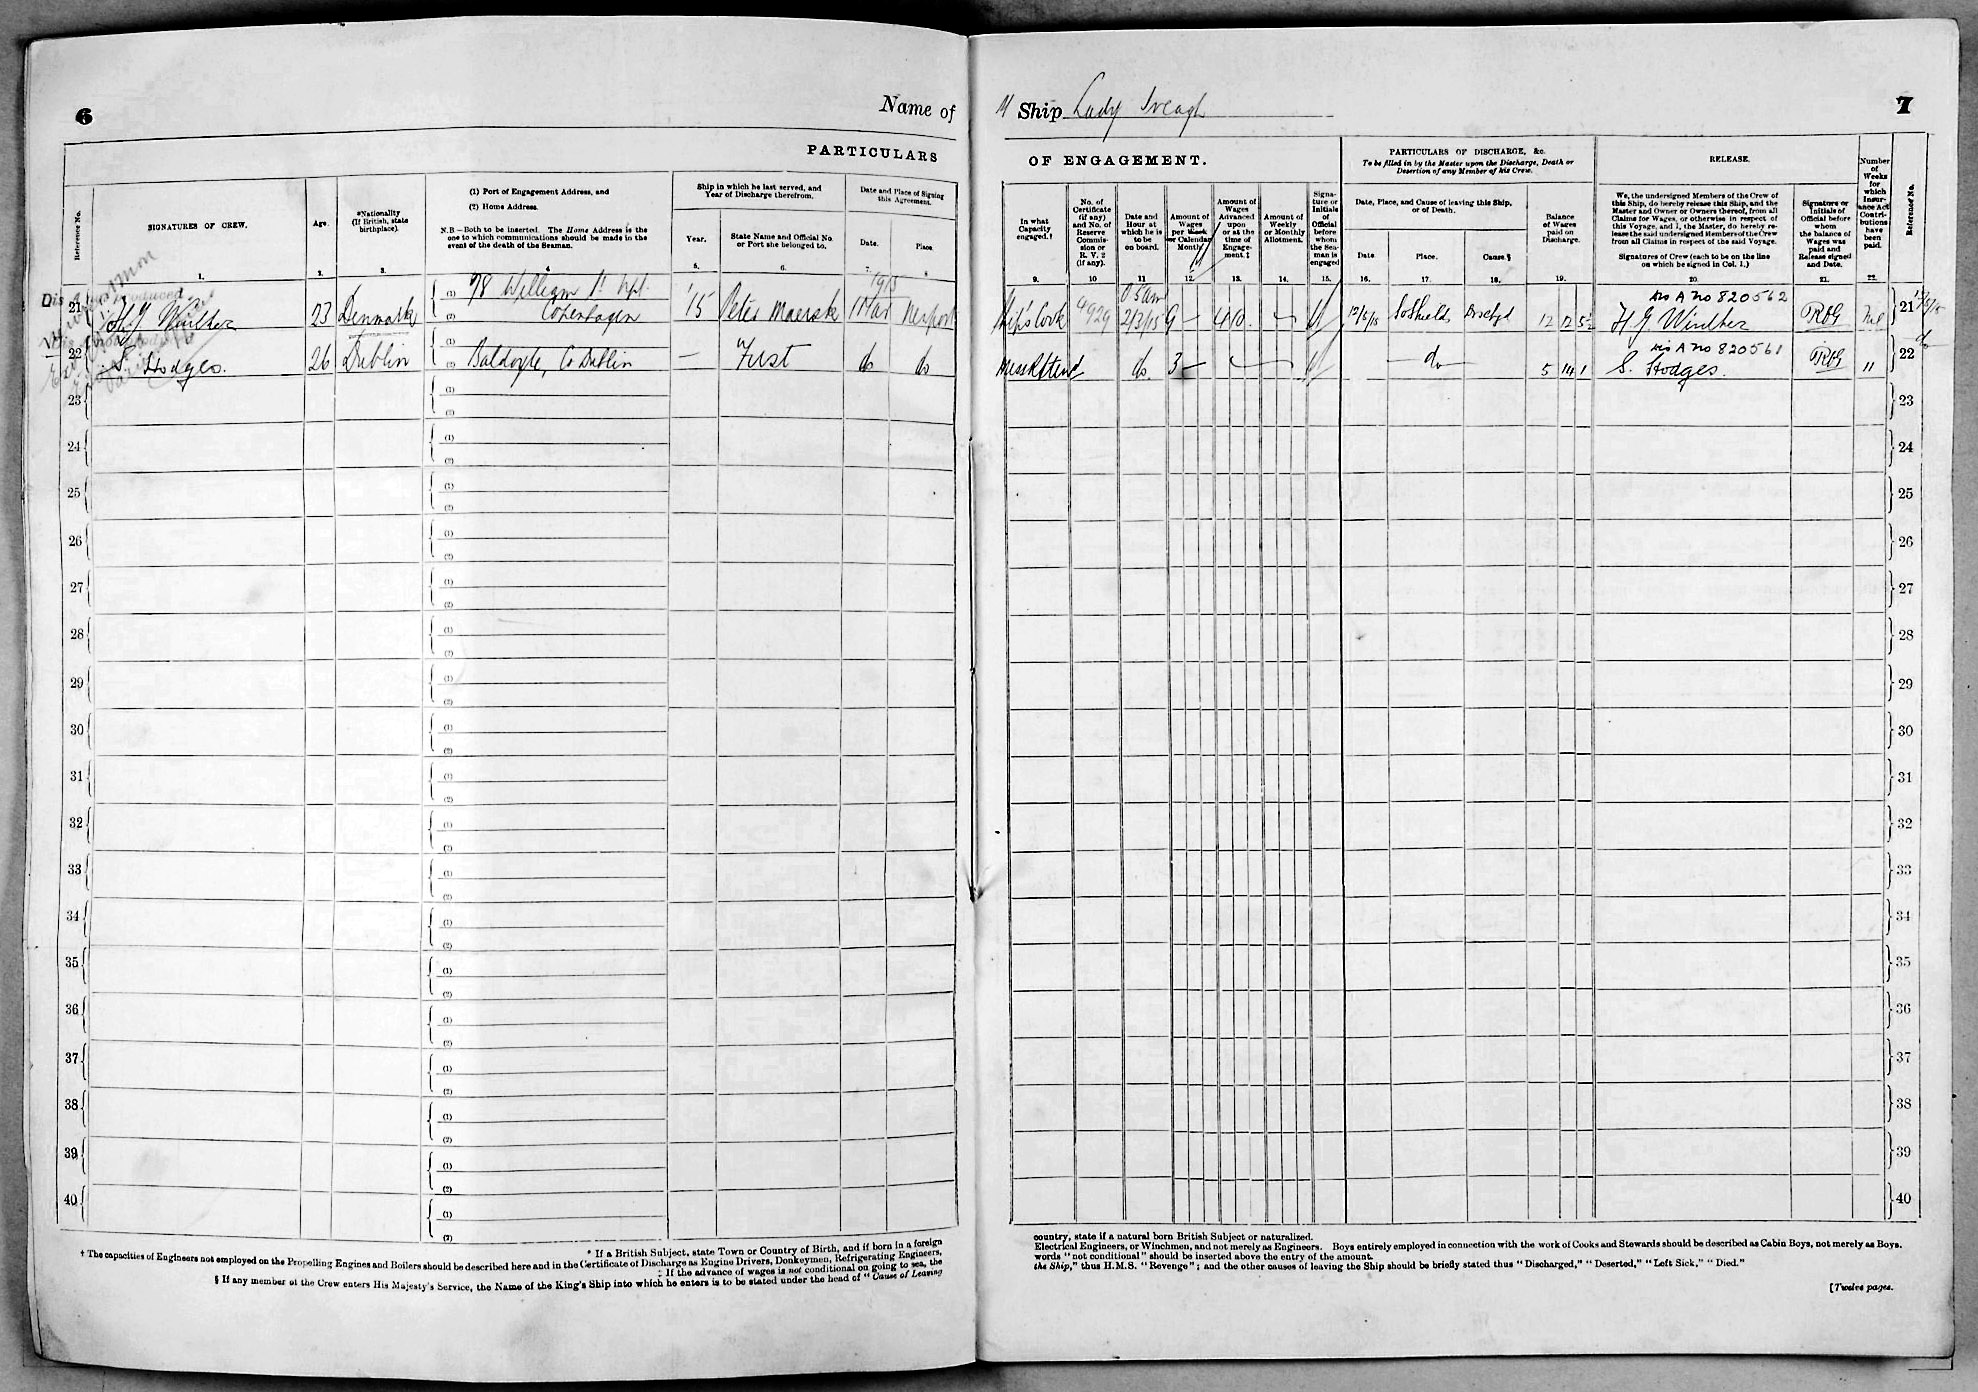 6
Name of
PARTICULARS
Reference No.
SIGNATURES OF CREW.
Age.
*Nationality
(If British, state
birthplace).
(1) Port of Engagement Address, and
(2) Home Address.
N.B—Both to be inserted. The Home Address is the
one to which communications should be made in the
event of the death of the Seaman.
Ship in which he last served, and
Year of Discharge therefrom.
Year.
State Name and Official No.
or Port she belonged to.
Date and Place of Signing
this Agreement.
Date.
Place.
1.
2.
3.
4
5.
6.
7.
8
1915
21
H. G. Winther
23
Denmark
(1) 78 William St Npt.
(2) Copenhagen
'15
Peter Maersk
1 Mar
Newport
22
S. Hodges.
26
Dublin
Baldoyle, Co Dublin
—
First
do
do
23
(1)
(2)
24
(1)
(2)
25
(1)
(2)
26
(1)
(2)
27
(1)
(2)
28
(1)
(2)
29
(1)
(2)
30
(1)
(2)
31
(1)
(2)
32
(1)
(2)
33
(1)
(2)
34
(1)
(2)
35
(1)
(2)
36
(1)
(2)
37
(1)
(2)
38
(1)
(2)
39
(1)
(2)
40
(1)
(2)
* If a British Subject, state Town or Country of Birth, and if born in a foreign
† The capacities of Engineers not employed on the Propelling Engines and Boilers should be described here and in the Certificate of Discharge as Engine Drivers, Donkeymen, Refrigerating Engineers,
‡ If the advance of wages is not conditional on going to sea, the
§ If any member of the Crew enters His Majesty's Service, the Name of the King's Ship into which he enters is to be stated under the head of "Cause of Leaving
Ship Lady Iveagh
7
OF ENGAGEMENT.
PARTICULARS OF DISCHARGE, &c.
To be filled in by the Master upon the Discharge, Death or
Desertion of any Member of his Crew.
RELEASE.
In what
Capacity
engaged.†
No. of
Certificate
(if any)
and No. of
Reserve
Commis-
sion or
R. V. 2
(if any).
Date and
Hour at
which he is
to be
on board.
Amount of
Wages
per Week
or Calendar
Month.
Amount of
Wages
Advanced
upon
or at the
time of
Engage-
ment.‡
Amount of
Weekly
or Monthly
Allotment.
Signa-
ture or
Initials
of
Official
before
whom
the Sea-
man is
engaged
Date, Place, and Cause of leaving this Ship,
or of Death.
Date
Place.
Cause.§
Balance
of Wages
paid on
Discharge.
We, the undersigned Members of the Crew of
this Ship, do hereby release this Ship, and the
Master and Owner or Owners thereof, from all
Claims for Wages, or otherwise in respect of
this Voyage, and I, the Master, do hereby re-
lease the said undersigned Members of the Crew
from all Claims in respect of the said Voyage.
Signatures of Crew (each to be on the line
on which he signed in Col. 1.)
Signature or
Initials of
Official before
whom
the balance of
Wages was
paid and
Release signed
and Date.
Number
of
Weeks
for
which
Insur-
ance Act
Contri-
butions
have
been
paid.
Reference No.
9.
10
11
12.
13.
14.
15.
16.
17.
18.
19.
20.
21.
22.
Ship's Cook
4929
2/3/15
9 —
4 10
12/5/15
So Shields
Dischgd
12 12 5½
Dis A No 820562
H G Winther
Nil
21
do
3 —
do
5 14 1
Dis A No 820561
S. Hodges.
"
22
do
23
24
25
26
27
28
29
30
31
32
33
34
35
36
37
38
39
40
country, state if a natural born British Subject or naturalized.
Electrical Engineers, or Winchmen, and not merely as Engineers. Boys entirely employed in connection with the work of Cooks and Stewards should be described as Cabin Boys, not merely as Boys.
words "not conditional" should be inserted above the entry of the amount.
the Ship," thus H.M.S. "Revenge"; and the other causes of leaving the Ship should be briefly stated thus "Discharged," "Deserted," "Left Sick," "Died."
[Twelve pages.